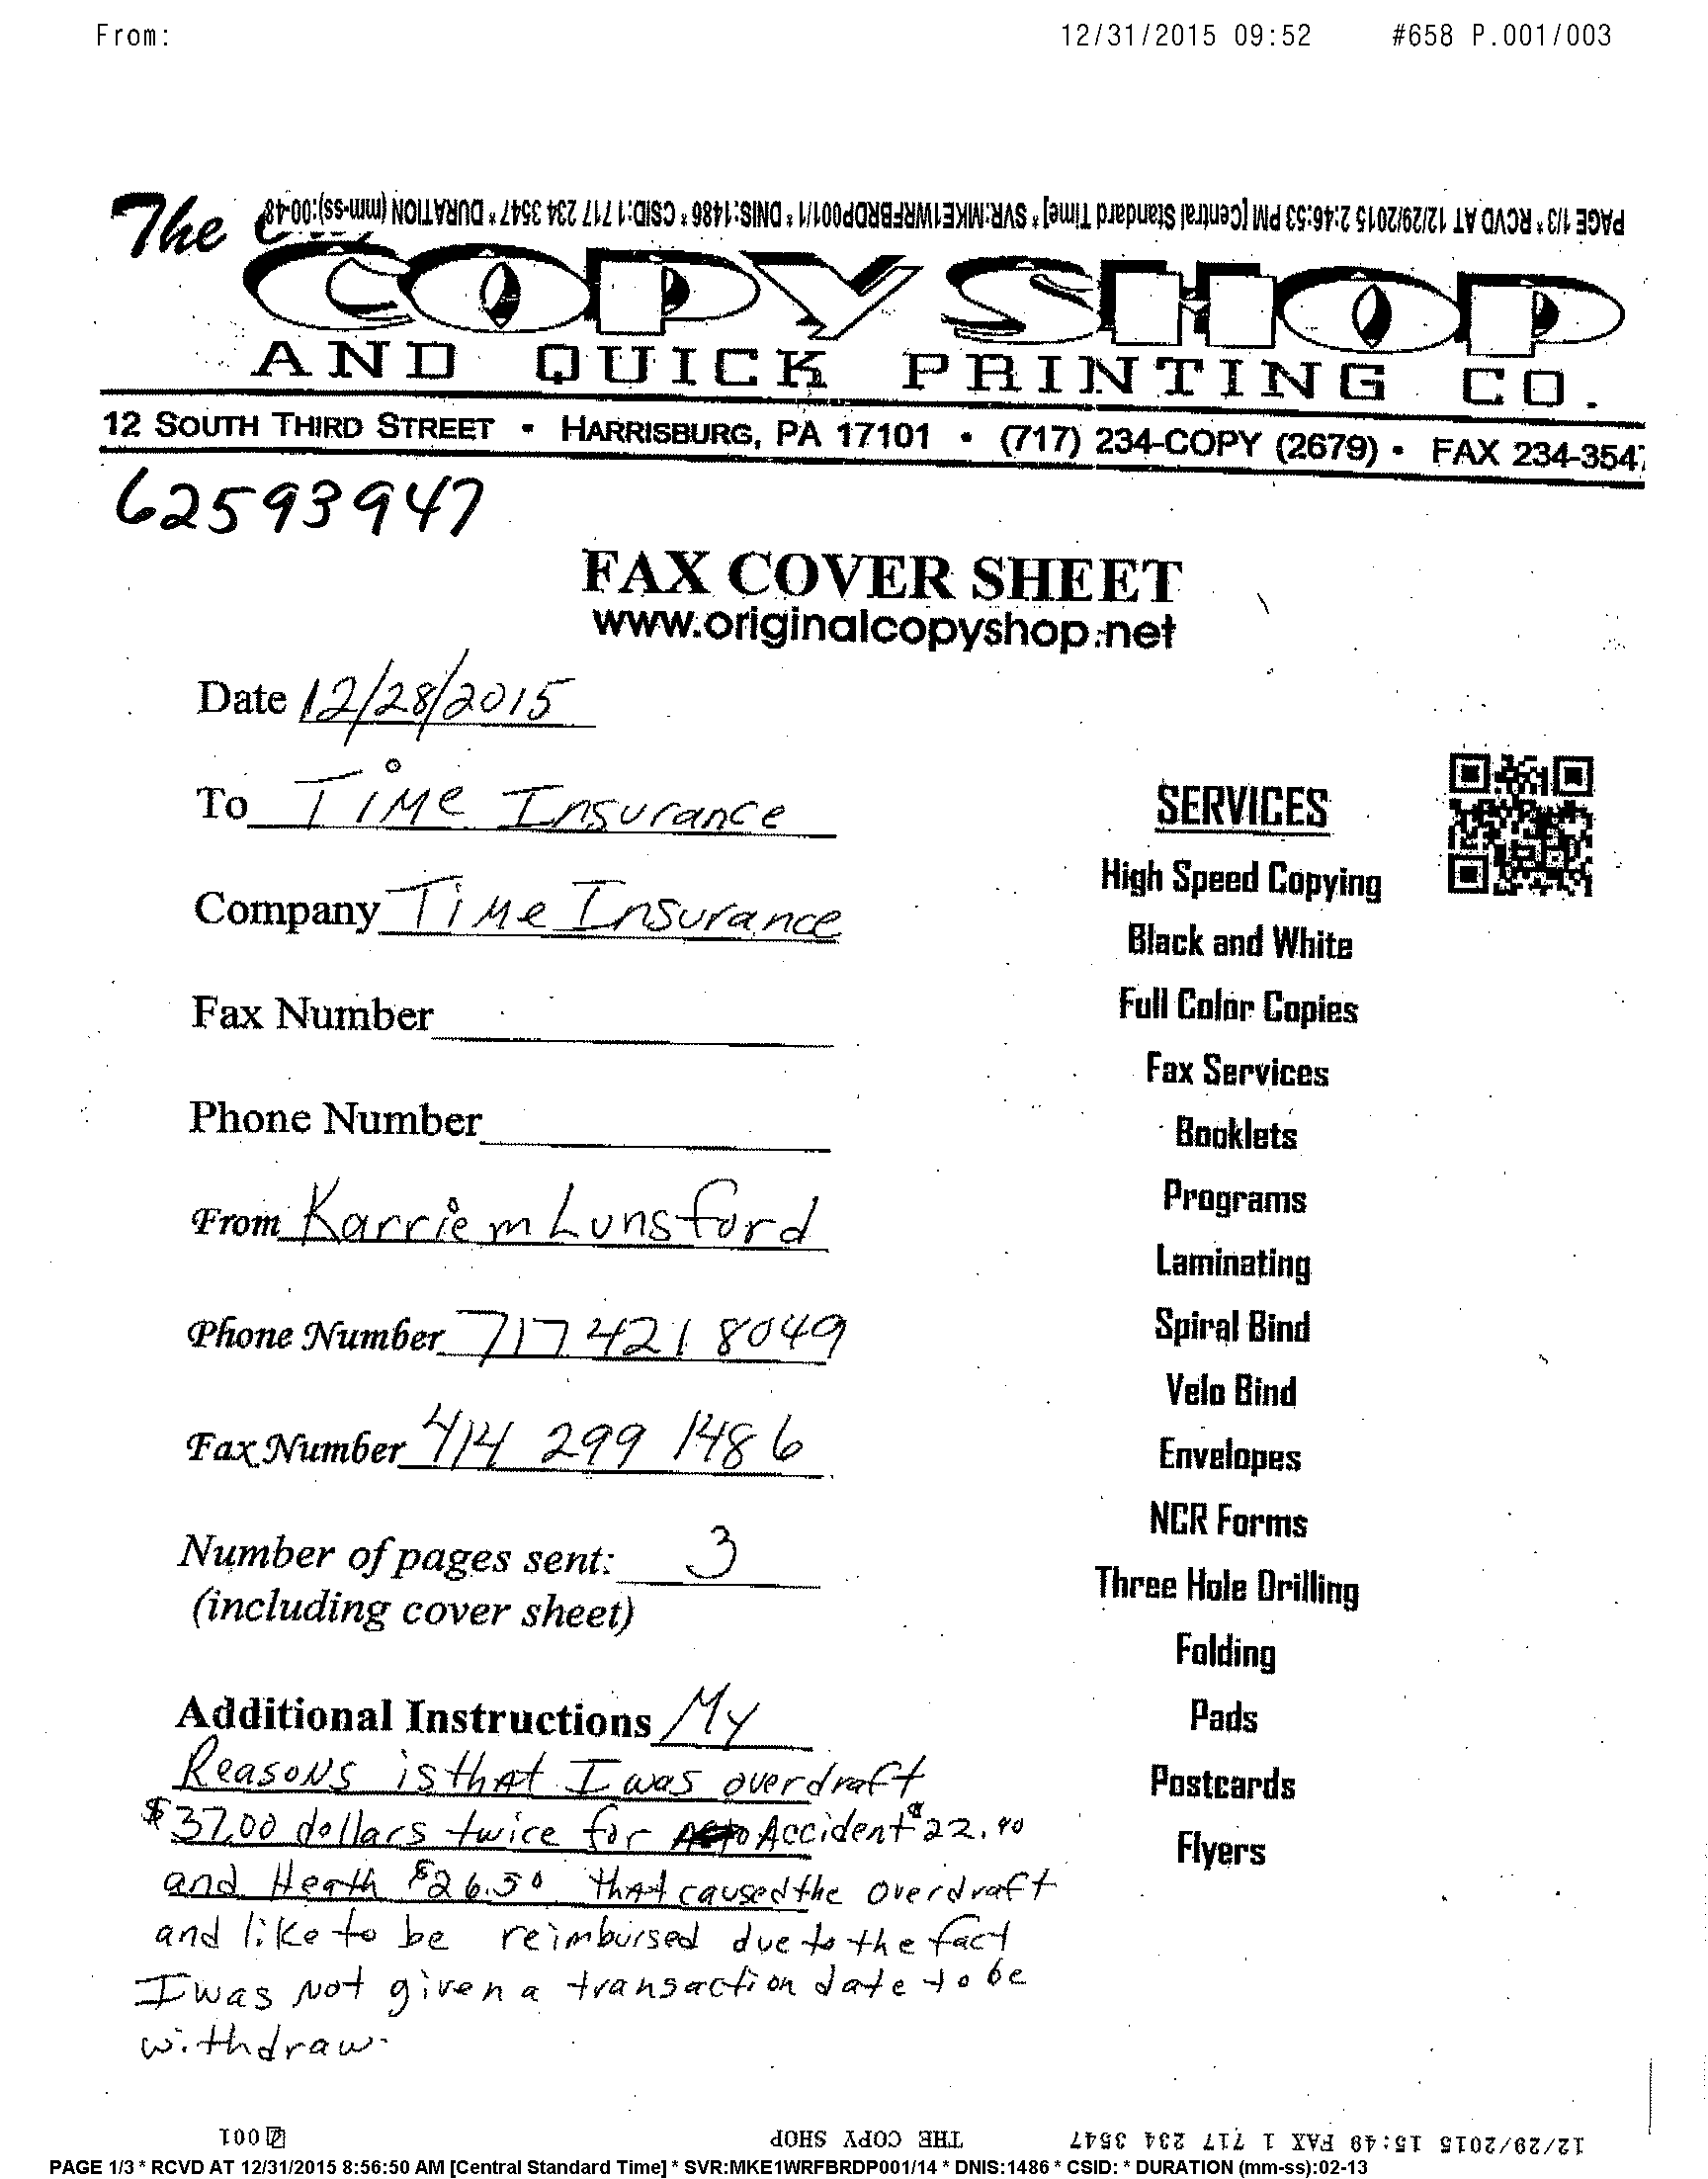 From: 12/31/2015 09:52 #658 P.001/003
PAGE 1/3 * RCVD AT 12/29/2015 2:46:53 PM [Central Standard Time] * SVR:MKE1WRFBRDP001/1 * DNIS:1486 * CSID:1 717 234 3547 * DURATION (mm-ss):00-48
The
COPY SHOP
AND QUICK PRINTING CO.
12 SOUTH THIRD STREET • HARRISBURG, PA 17101 • (717) 234-COPY (2679) • FAX 234-3547
62593947
FAX COVER SHEET
www.originalcopyshop.net
Date 12/28/2015
To Time Insurance
Company Time Insurance
Fax Number
Phone Number
From Karrie m Lunsford
Phone Number 717 421 8049
Fax Number 414 299 1486
Number of pages sent: 3
(including cover sheet)
Additional Instructions My
Reasons is that I was overdraft
$37.00 dollars twice for Accident $22.40
and Heath $26.50 that caused the overdraft
and like to be reimbursed due to the fact
I was Not given a transaction date to be
withdraw.
SERVICES
High Speed Copying
Black and White
Full Color Copies
Fax Services
Booklets
Programs
Laminating
Spiral Bind
Velo Bind
Envelopes
NCR Forms
Three Hole Drilling
Folding
Pads
Postcards
Flyers
12/29/2015 15:48 FAX 1 717 234 3547 THE COPY SHOP 001
PAGE 1/3 * RCVD AT 12/31/2015 8:56:50 AM [Central Standard Time] * SVR:MKE1WRFBRDP001/14 * DNIS:1486 * CSID: * DURATION (mm-ss):02-13